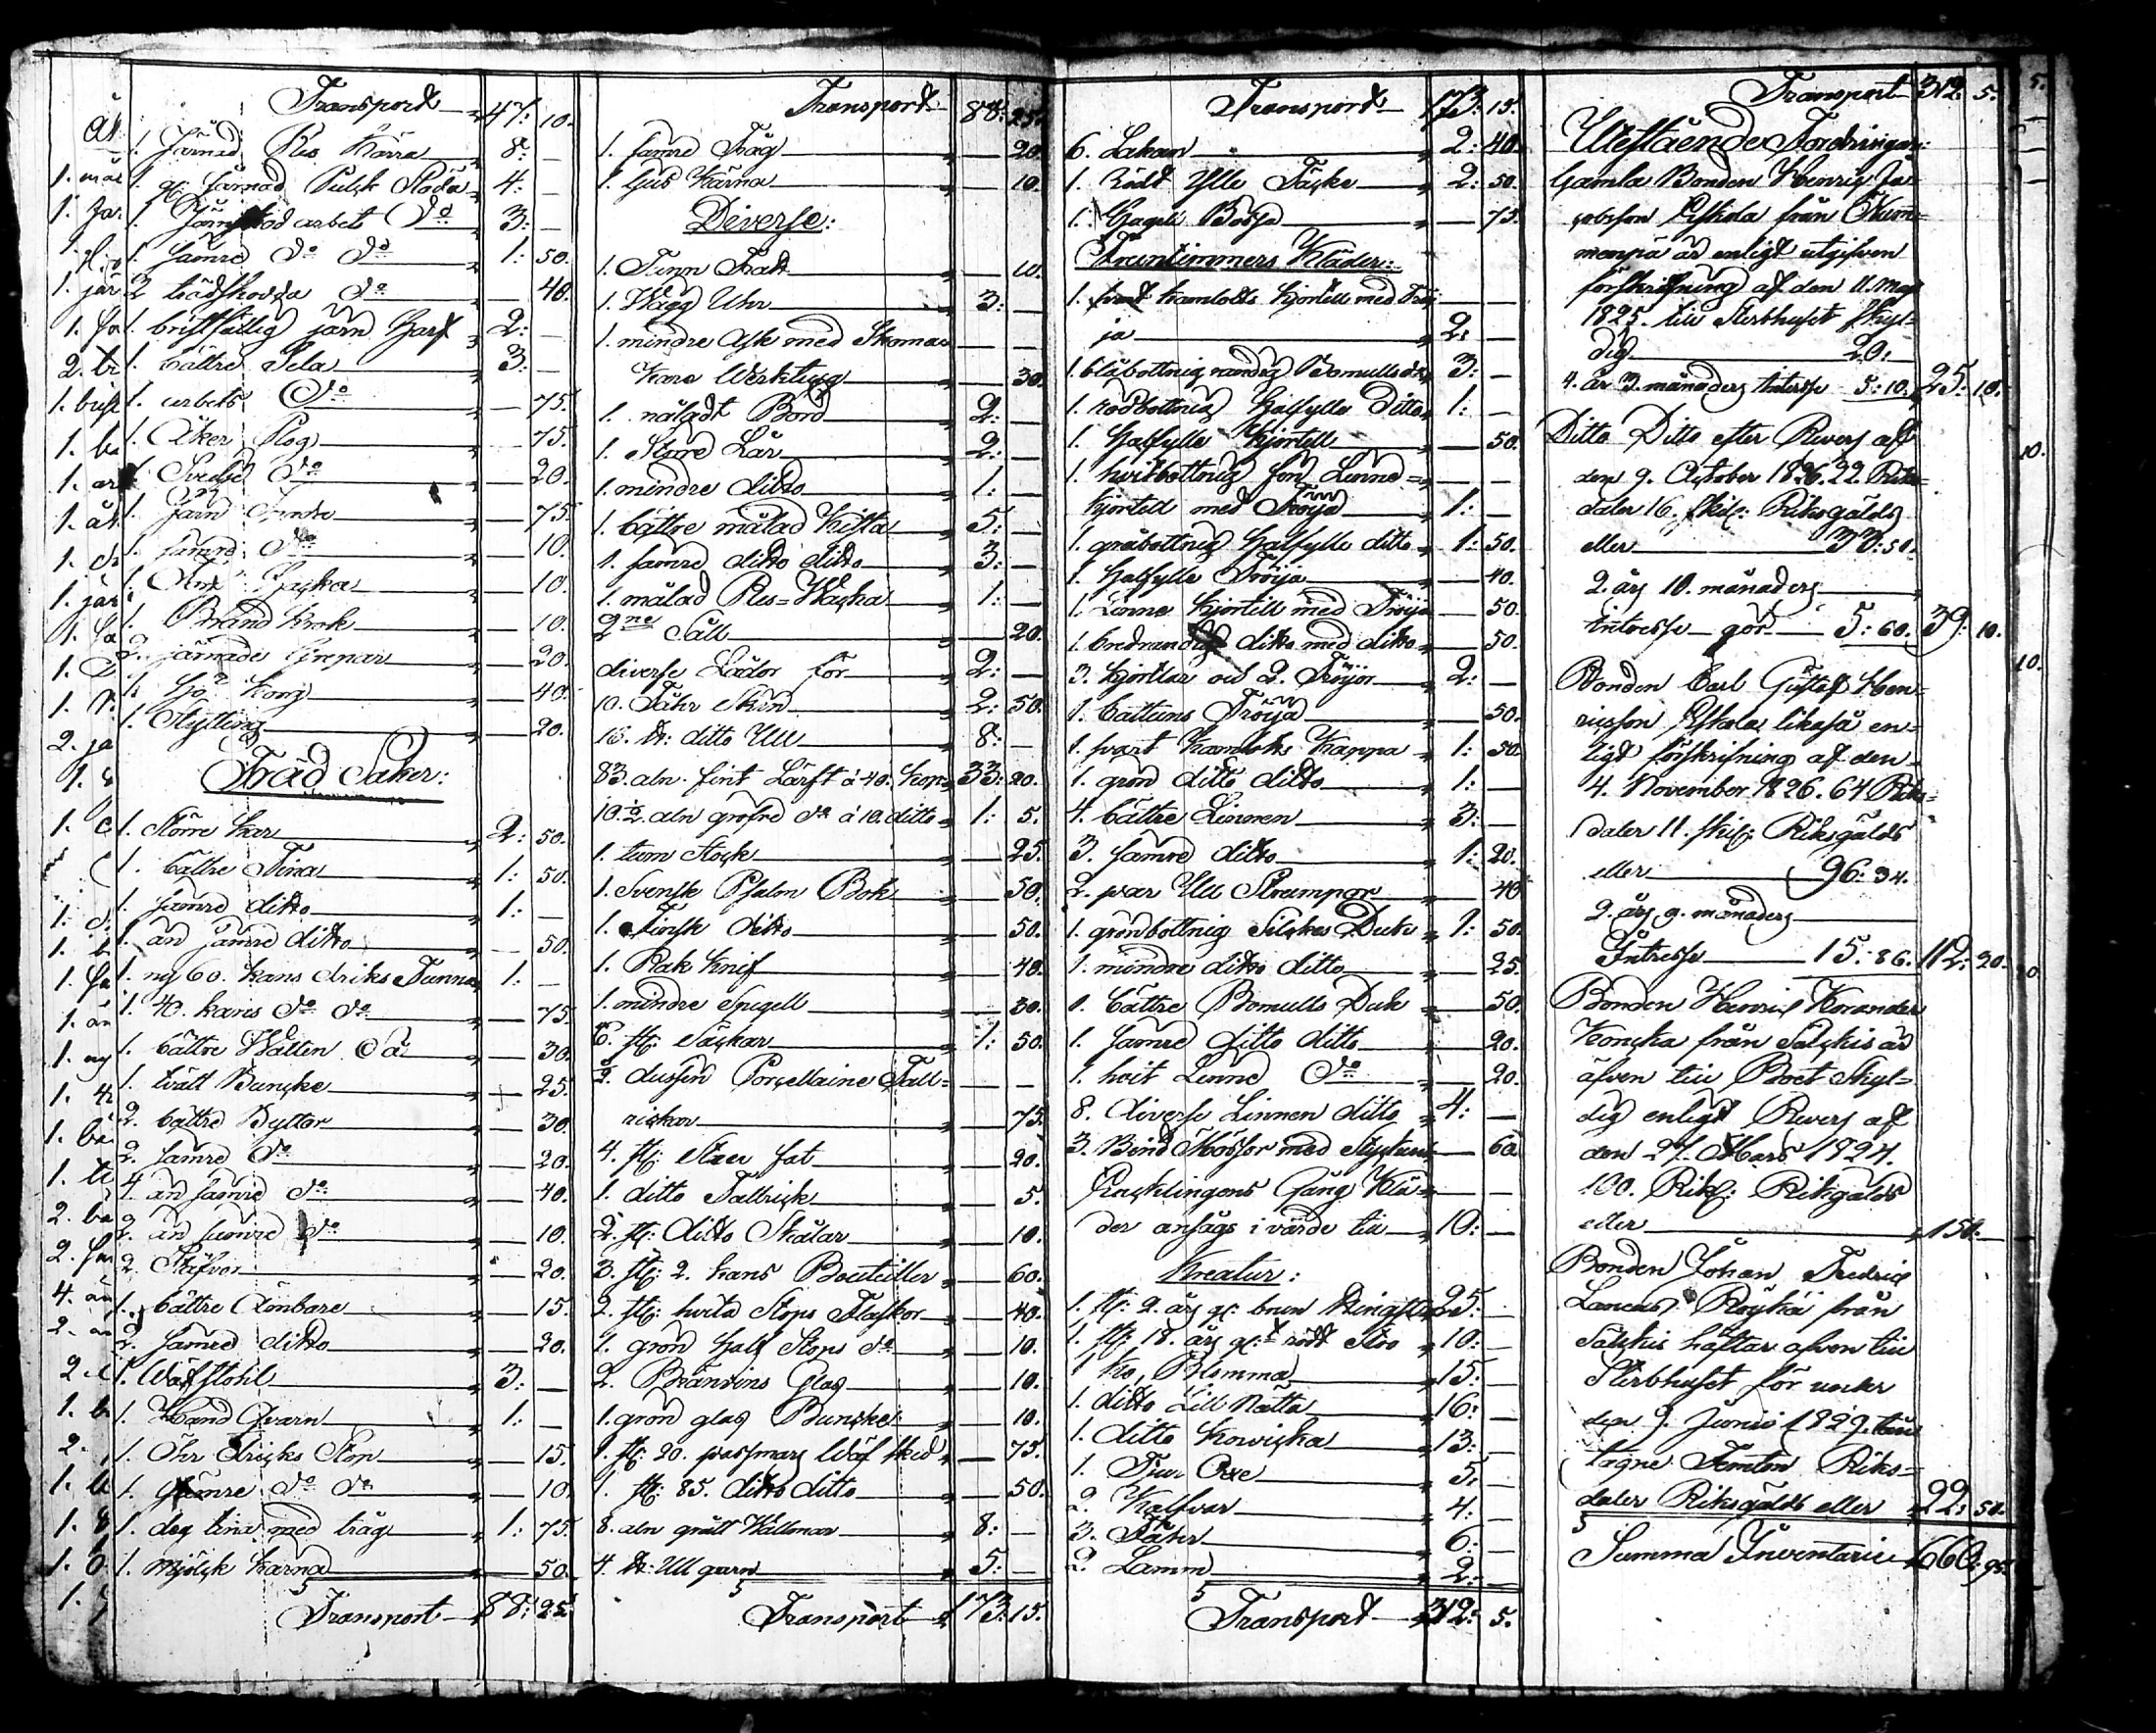 Transport 47: 10.
1. Järnad Res Kärra 8: —
1. gl: Järnad Pulsk Släda 4: —
1. arbets Do 3: —
1. sämre Do Do 1: 50.
2 trädskodda Do — 40.
1. bristfällig järn Harf 2: —
1. bättre Sela 3: —
1. arbets Do — 75.
1. Åker Plog — 75.
1. Svedje Do — 20.
1. Järn — 75.
1. sämre Do — 10.
1. — 10.
1. Brand Krok — 10.
2. järnade Grepar — 20.
1. Hö Korg — 40.
1. Slytting — 20.
Träd Saker:
1. Större Kar 2: 50.
1. bättre Tina 1: 50.
1. sämre ditto 1: —
1. än sämre ditto — 50.
1. ny 60. kans dricks Tunna 1: —
1. 40. kans Do Do — 75.
1. bättre Watten Så — 30.
1. tvätt Buncke — 25.
2. bättre Byttor — 30.
2. sämre Do — 20.
4. än sämre Do — 40.
2. än sämre Do — 10.
2. Stäfvor — 20.
1. bättre Ämbare — 15.
2. sämre ditto — 20.
1. Wäfstohl 3: —
1. Hand Qvarn 1: —
1. Öhr Dricks Stop — 15.
1. sämre Do Do — 10.
1. deg tina med tråg 1: 75.
1. Mjölck Kärna — 50.
Transport 88: 25.
Transport 88: 25.
1. sämre Tråg — 20.
1. ljus Kärna — 10.
Diverse:
1. Tenn Fat — 10.
1. Wägg Uhr 3: —
1. mindre Ask med Skoma= — —
kare Werktyg — 30.
1. målgdt Bord 2: —
1. Större Lår 2: —
1. mindre ditto 1: —
1. bättre målad Kista 5: —
1. sämre ditto ditto 3: —
1. målad Res=Wäska 1: —
2ne Såll — 20.
diverse Lådor för 2: —
10. Fåhr Skin 2: 50.
16. ℔: ditto Ull 8: —
83. aln. fint Lärft à 40. kop: 33: 20.
10.½. aln gröfre Do à 10. ditto 1: 5.
1. tum Stock — 25.
1. Svensk Psalm Bok — 50.
1. Finsk ditto — 50.
1. Rak Knif — 40.
1. mindre Spegell — 30.
6. st: Säckar 1: 50.
½. dussin Porcellaine Tall= — —
rickar — 75.
4. st: Sten fat — 20.
1. ditto Tallrick — 5.
2. st: ditto Skålar — 10.
3. st: 2. kans Bouteiller — 60.
2. st: hvita Stops Flaskor — 40.
1. grön half Stops Do — 10.
2. Bränvins Glas — 10.
1. grön glas Buncke — 10.
1. st: 20. pasmars Wäf sked — 75.
1. st: 85. ditto ditto — 50.
8. aln grått Wallmar 8: —
4. ℔: Ull garn 5: —
Transport 173: 15.
Transport 173: 15.
6. Lakan 2: 40.
1. Rödt Ylle Täcke 2: 50.
1. Hagel Bössa — 75.
Fruntimmers Kläder:
1. svart kamlotts kjortell med Tröj — —
ja 2: —
1. blåbottnig randig Bomulls do 3: —
1. rödbottnig Halfylle Ditto 1: —
1. Halfylle Kjortell — 50.
1. hvitbottnig Linne= — —
kjortell med Tröija 1: —
1. gråbottnig halfylle ditto 1: 50.
1. Halfylle Tröija — 40.
1. Linne kjortell med Tröija — 50.
1. bredrandig ditto med ditto — 50.
3. Kjortlar och 2. Tröijor 2: —
1. Cattuns Tröija — 50.
1. svart Kamlotts Kappa 1: 50.
1. grön ditto ditto 1: —
4. bättre Linnen 3: —
3. sämre ditto 1: 20.
2. par Ull Strumpor — 40
1. grönbottnig Silkes Duk 1: 50.
1. mindre ditto ditto — 25.
1. bättre Bomulls Duk — 50.
1. sämre ditto ditto — 20.
1. hvit Linne Do — 20.
8. diverse Linnen ditto 4: —
3. Bind Mössor med Stycken — 60.
Encklingens Gång Klä= — —
der ansågs i värde till 10: —
Kreatur:
1. st: 2. års gl: brun Hingst 25: —
1. st: 18. års gl:t rödt Sto 10: —
1 Ko, Blomma 15: —
1. ditto Lill Nätta 16: —
1. ditto Kowicka 13: —
1. Tjur Oxe 5: —
2. Kalfvar 4: —
3. Fåhr 6: —
2. Lamm 2: —
Transport 312: 5.
Transport 312: 5.
Utestående Fordringar:
Gamla Bonden Henric Ja=
cobsson Eskola från Kum=
menpä är enligt utgifven
förskrifning af den 11. Maji
1825. till Sterbhuset skyl=
dig 20: —
4. år 3. månaders Intresse 5: 10. 25: 10.
Ditto Ditto efter Revers af
den 9. October 1826. 22. Riks=
daler 16. skil: Riksgälds
eller 33: 50.
2. års 10. månaders
intresse gör 5: 60. 39: 10.
Bonden Carl Gustaf Hen=
ricsson Eskola likaså en=
ligt förskrifning af den
4. November 1826. 64 Riks=
daler 11. skil: Riksgälds
eller 96: 34.
2. års 9. månaders
Intresse 15: 86. 112: 20.
Bonden Henric Korander
Koncka från Sälckis är
äfven till Boet Skyl=
dig enligt Revers af
den 27. Mars 1824.
100. Rik: Riksgälds
eller 150: —
Bonden Johan Fredric
Lancas Röyhä från
Sälckis häftar äfven till
Sterbhuset för under
den 9. Junii 1829.
tagne Femton Riks=
daler Riksgälds eller 22: 50.
Summa Inventarii 660: 95.